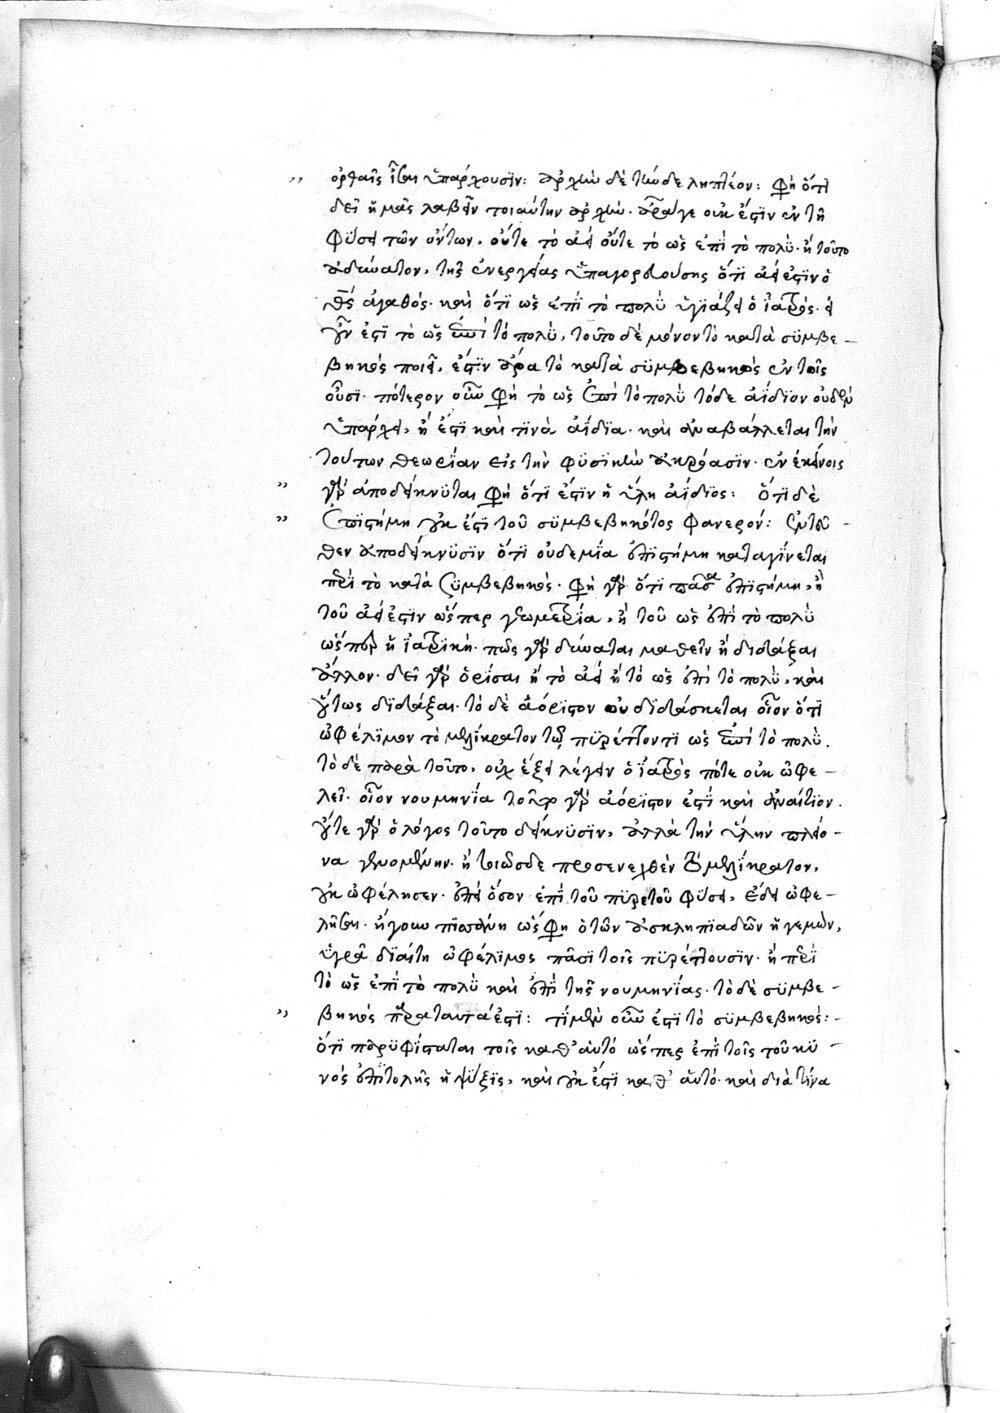 ὀρθαῖς ὑπάρχουσιν: ἀρχὴν δὲ τήνδε ληπτέον: φη ὅτι
δεῖ ἡμᾶς λαβεῖν τοιαύτην ἀρχήν· ἆράγε οὐκ ἔστιν ἐν τῆ
φύσει τῶν ὄντων, οὔτε τὸ ἀεὶ οὔτε τὸ ὡς ἐπὶ τὸ πολύ· ἢ τοῦτο
ἀδύνατον, τῆς ἐνεργείας ὑπαγορευούσης ὅτι ἀεί ἐστιν ὁ
θς ἀγαθός· καὶ ὅτι ὡς ἐπὶ τὸ πολὺ ὑγιάζει ὁ ἰατρός· εἰ
οὖν ἐστι τὸ ὡς ἐπὶ τὸ πολύ, τοῦτο δὲ μόνον τὸ κατὰ συμβε-
βηκὸς ποιεῖ, ἔστιν ἄρα τὸ κατὰ συμβεβηκὸς ἐν τοῖς
οὖσι· πότερον οὖν φη τὸ ὡς ἐπὶ τὸ πολὺ τόδε ἀΐδιον οὐδενὶ
ὑπάρχει, ἢ ἐστὶ καὶ τινὰ ἀΐδια· καὶ ἀναβάλλεται τὴν
τούτων θεωρίαν εἰς τὴν φυσικὴν ἀκρόασιν· ἐν ἐκείνοις
γὰρ ἀποδείκνυται φη ὅτι ἐστὶν ἡ ὕλη ἀΐδιος: ὅτι δὲ
ἐπιστήμη οὐκ ἔστι τοῦ συμβεβηκότος φανερόν: ἐντεῦ-
θεν ἀποδείκνυσιν ὅτι οὐδεμία ἐπιστήμη καταγίνεται
περὶ τὸ κατὰ συμβεβηκός· φη γὰρ ὅτι πᾶσα ἐπιστήμη, ἢ
τοῦ ἀεί ἐστιν ὥσπερ γεωμετρία, ἢ τοῦ ὡς ἐπὶ τὸ πολὺ
ὥσπερ ἡ ἰατρική· πῶς γὰρ δύναται μαθεῖν ἢ διδάξαι
ἄλλον· δεῖ γὰρ ὁρίσαι ἢ τὸ ἀεὶ ἢ τὸ ὡς ἐπὶ τὸ πολύ, καὶ
οὕτως διδάξαι· τὸ δὲ ἀόριστον οὐ διδάσκεται οἷον ὅτι
ὠφέλιμον τὸ μελίκρατον τῶ πυρέττοντι ὡς ἐπὶ τὸ πολύ.
τὸ δὲ παρὰ τοῦτο, οὐχ ἕξει λέγειν ὁ ἰατρὸς πότε οὐκ ὠφε-
λεῖ· οἷον νουμηνία τοῦτο γὰρ ἀόριστον ἐστὶ καὶ ἀναίτιον.
οὔτε γὰρ ὁ λόγος τοῦτο δείκνυσιν, ἀλλὰ τὴν ὕλην πλείο-
να γενομένην· ἢ τοιῶσδε προσενεχθὲν τὸ μελίκρατον,
οὐκ ὠφέλησεν· ἐπεὶ ὅσον ἐπὶ τοῦ πυρετοῦ φύσει, ἔδει ὠφε-
ὥς φη ὁ τῶν ἀσκληπιαδῶν ἡγεμών,
ὑγρὰ δίαιτη ὠφέλιμος πᾶσι τοῖς πυρέττουσιν· ἢ περὶ
τὸ ὡς ἐπὶ τὸ πολὺ καὶ ἐπὶ τῆς νουμηνίας· τὸ δὲ συμβε-
βηκὸς παρὰ ταυτά ἐστι: τί μὲν οὖν ἐστι τὸ συμβεβηκός:-
ὅτι παρυφίσταται τοῖς καθ' αὑτὸ ὥσπερ ἐπὶ τοῖς τοῦ κυ-
νὸς ἐπιτολῆς ἡ ψύξις, καὶ οὐκ ἔστι καθ' αὑτό· καὶ διὰ τίνα